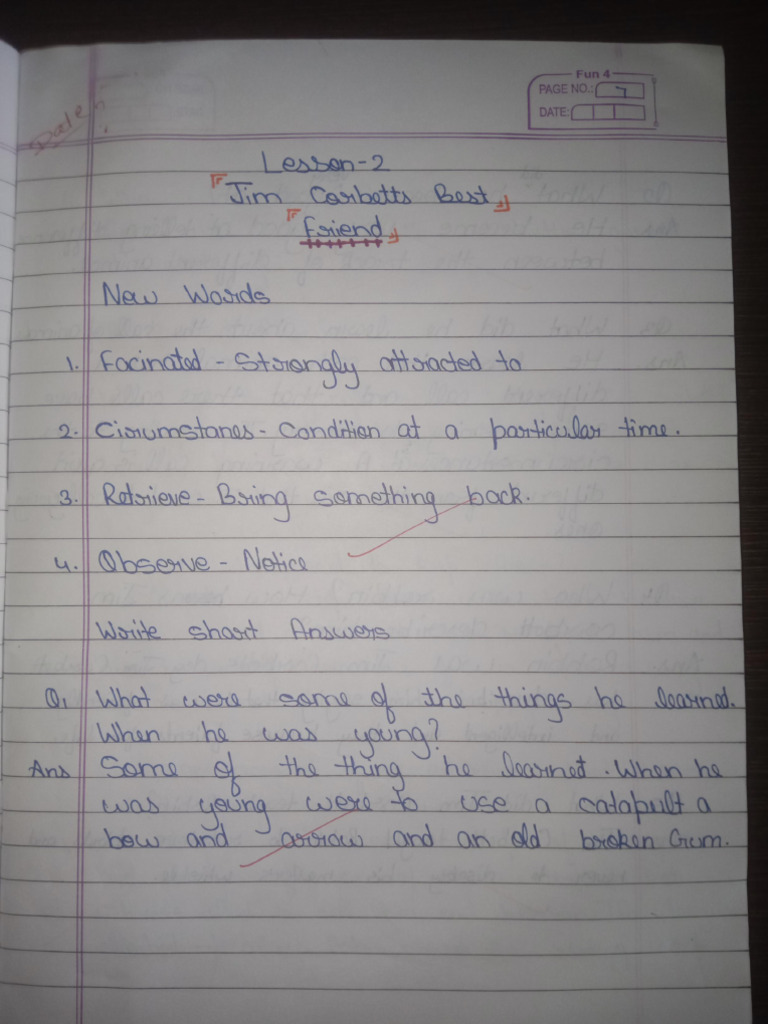 Fun 4
PAGE NO.: 7
DATE:
Date:
Lesson-2
Jim Corbetts Best
Friend
New Words
1. Facinated - Strongly attracted to
2. Cirumstanes - Condition at a particular time.
3. Retrieve - Bring something back.
4. Observe - Notice
Write short Answers
Q1 What were some of the things he learned.
When he was young?
Ans Some of the thing he learned. When he
was young were to use a catapult a
bow and arrow and an old broken Gum.